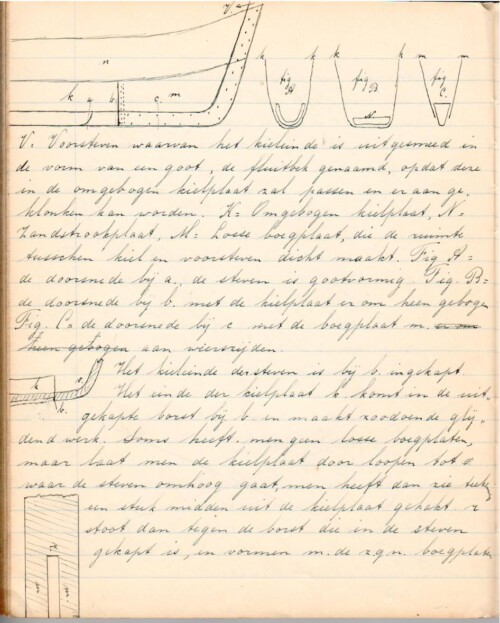 V.
n
k
a
b
c.
m
k
k
fig
A
k
k
fig
B
N
m
m
fig
C.
V. Voorsteven waarvan het kieleinde is uitgesmeed in
de vorm van een goot, de fluitbek genaamd, opdat deze
in de omgebogen kielplaat zal passen en er aan ge,
klonken kan worden. K= Omgebogen kielplaat, N=
Zandstrookplaat, M= Losse boegplaat, die de ruimte
tusschen kiel en voorsteven dicht maakt. Fig A=
de doorsnede bij a, de steven is gootvormig. Fig. B=
de doorsnede bij b. met de kielplaat er om heen gebogen
Fig. C= de doorsnede bij c met de boegplaat m. er om
heen gebogen aan weerszijden.
Het kieleinde der steven is bij b. ingekapt.
Het einde der kielplaat k. komt in de uit-
gekapte borst bij b. en maakt zoodoende glij„
dend werk. Soms heeft men geen losse boegplaten,
maar laat men de kielplaat door loopen tot
waar de steven omhoog gaat, men heeft dan zie
een stuk midden uit de kielplaat gehakt.
stoot dan tegen de borst die in de steven
gekapt is, en vormen m. de z.g.n. boegplaten
k
b.
m
m